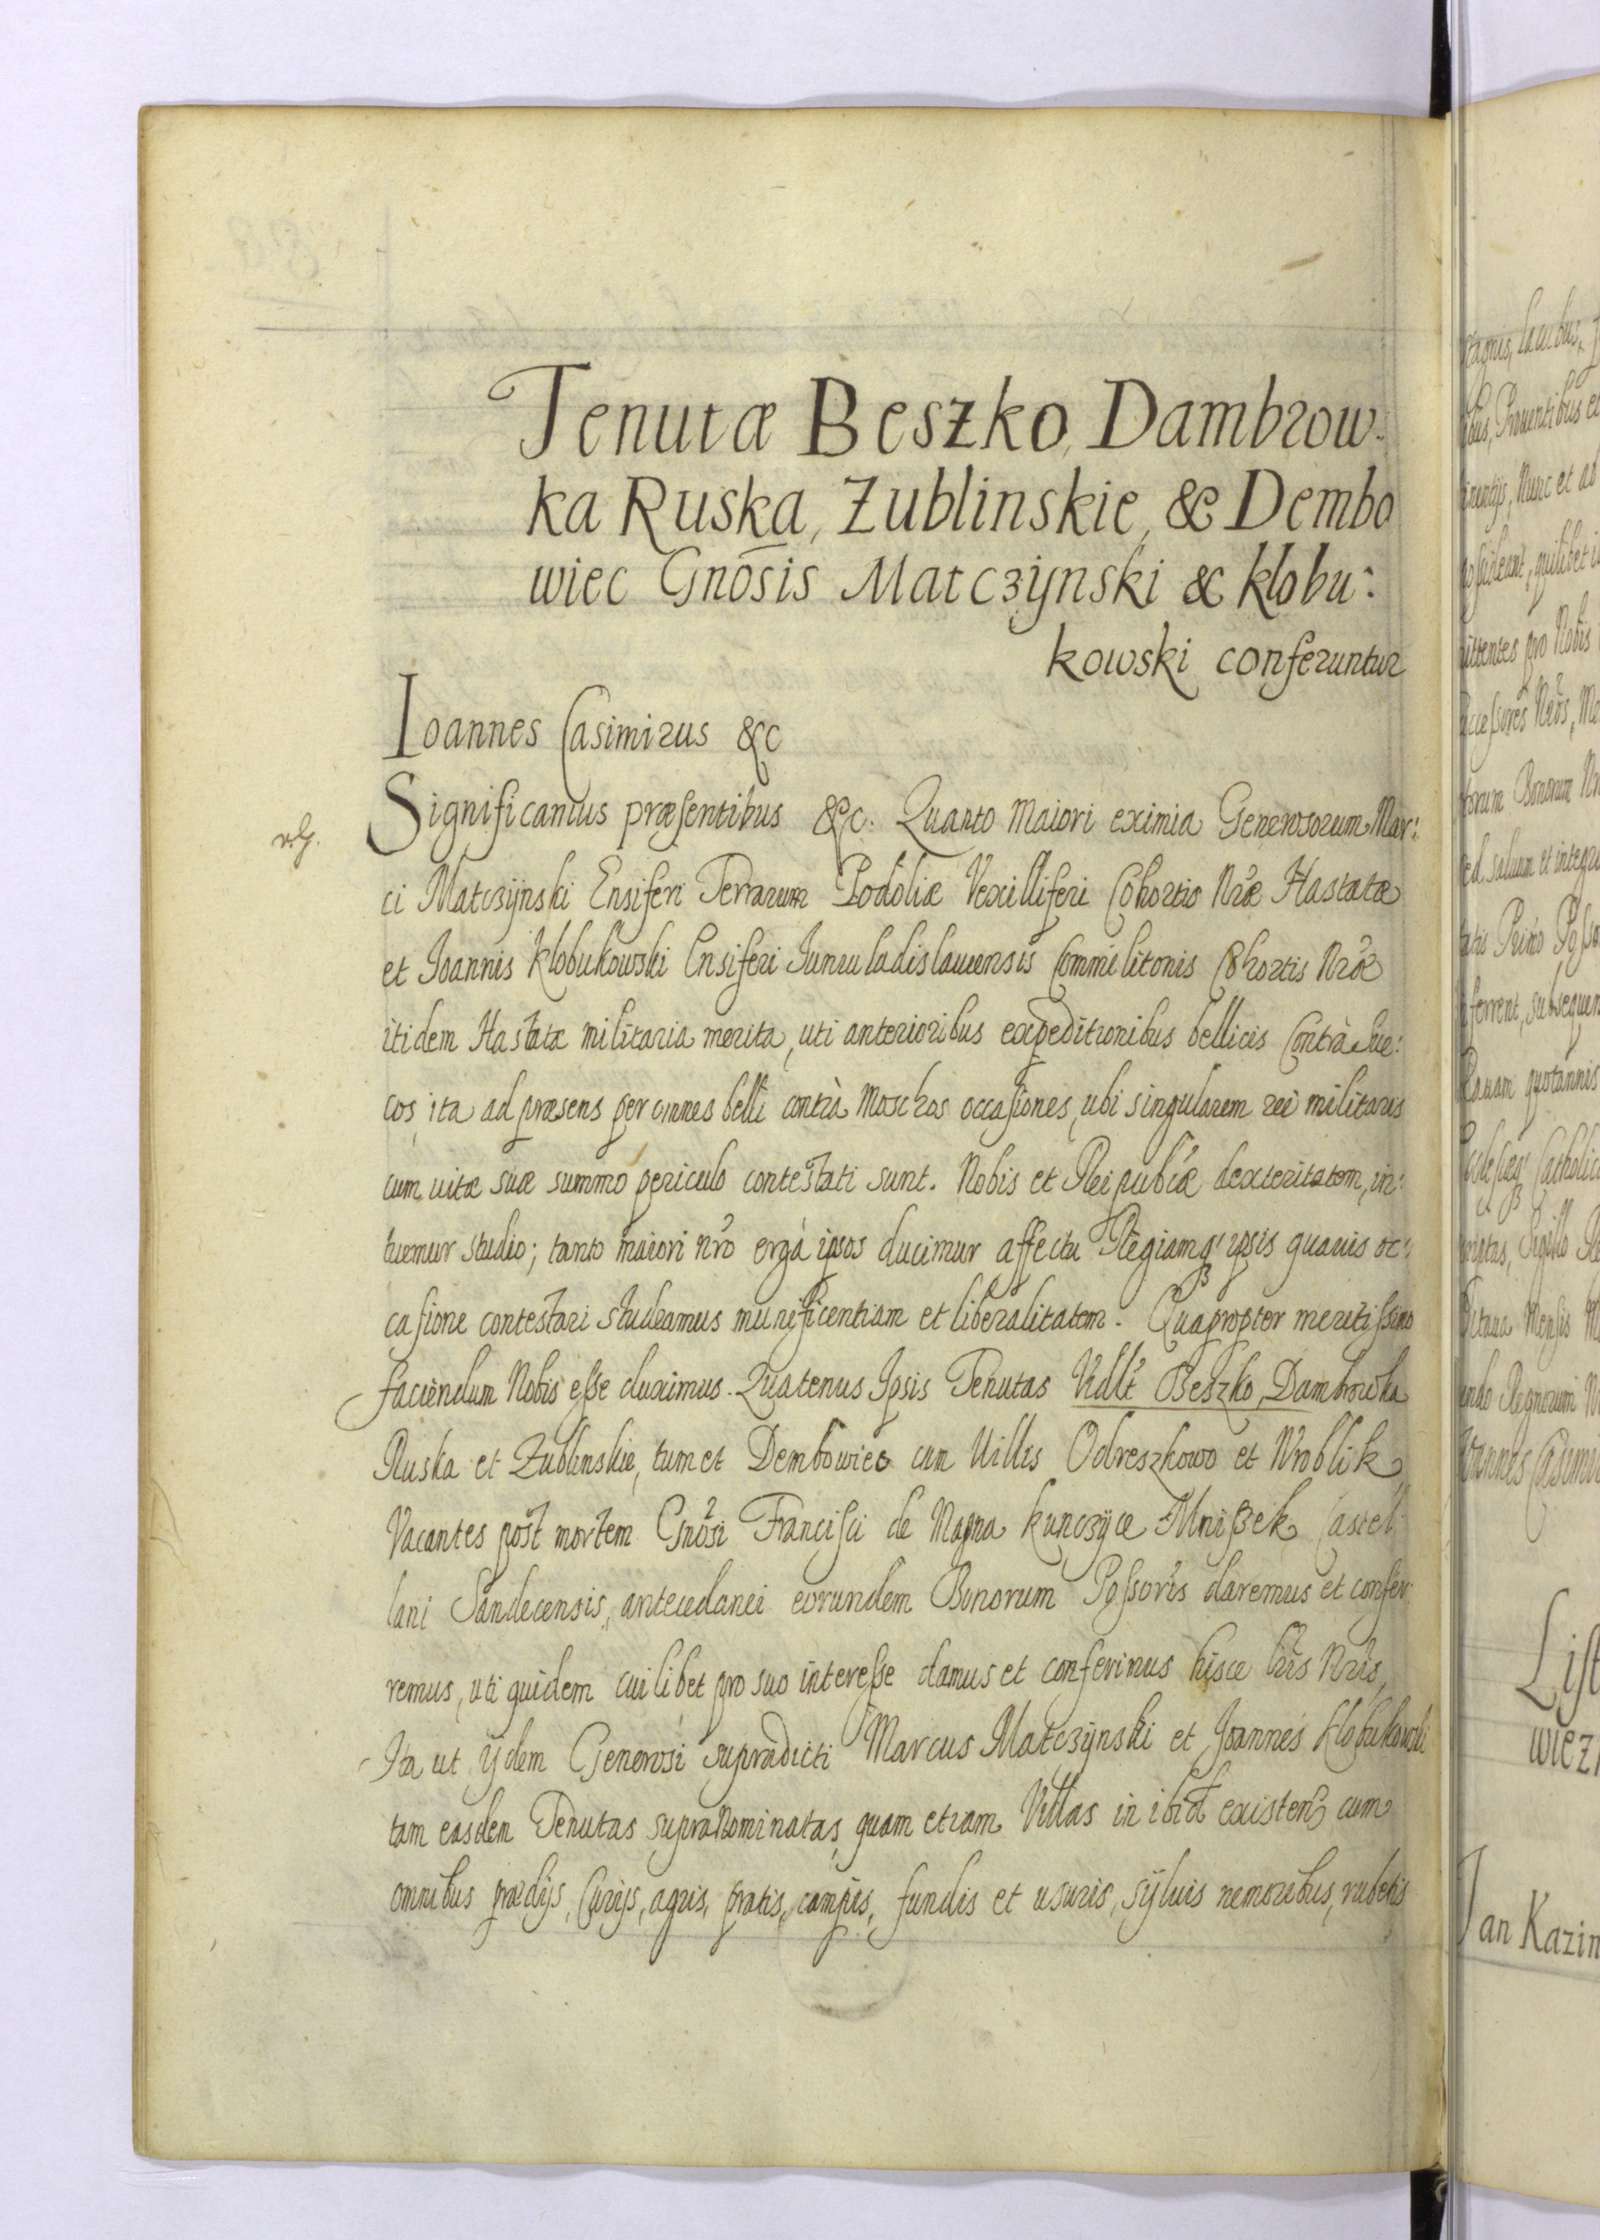 Tenutæ Beszko, Dambrow-
ka Ruska, Zublinskie, & Dembo
wiec Gnōsis Matczÿnski & klobu:
kowski conferuntur
Ioannes Casimirus &c
Significamus præsentibus &c. Quanto maiori eximia Generosorum Mar:
ci Matczÿnski Ensiferi Terrarum Podoliæ Vexilliferi Cohortis Nræ Hastatæ
et Joannis Klobukowski Ensiferi Junivladislaviensis Commilitonis Cohortis Nræ
itidem Hastatæ militaria merita, uti anterioribus expeditionibus bellicis Contrà Sue:
cos, ita ad præsens per omnes belli contrà Moschos occasiones, ubi singularem rei militaris
cum vitæ suæ summo periculo contestati sunt. Nobis et Rei publæ dexteritatem, in:
tuemur studio; tanto maiori nro ergà ipsos ducimur affectu Regiamq; ipsis quavis oc:
casione contestari studeamus munificentiam et liberalitatem. Quapropter meritissimo
faciendum Nobis esse duximus. Quatenus Ipsis Tenutas Vidlt Beszko, Dambrowka
Ruska et Zublinskie, tum et Dembowiec cum Villis Odreszkowo et Wroblik,
Vacantes post mortem Gnosi Francisci de Magna kunczÿce Mniszek Castel:
lani Sandecensis, antecedanei eorundem Bonorum Possoris daremus et confer
remus, uti quidem cuilibet pro suo interesse damus et conferimus hisce lris Nris,
Ita ut ijdem Generosi supradicti Marcus Matczÿnski et Joannes Klobukowski
tam easdem Tenutas supranominatas, quam etiam Villas in ibid existen cum
omnibus prædijs, Curijs, agris, pratis, campis, fundis et usuris, sÿluis nemoribus, rubetis